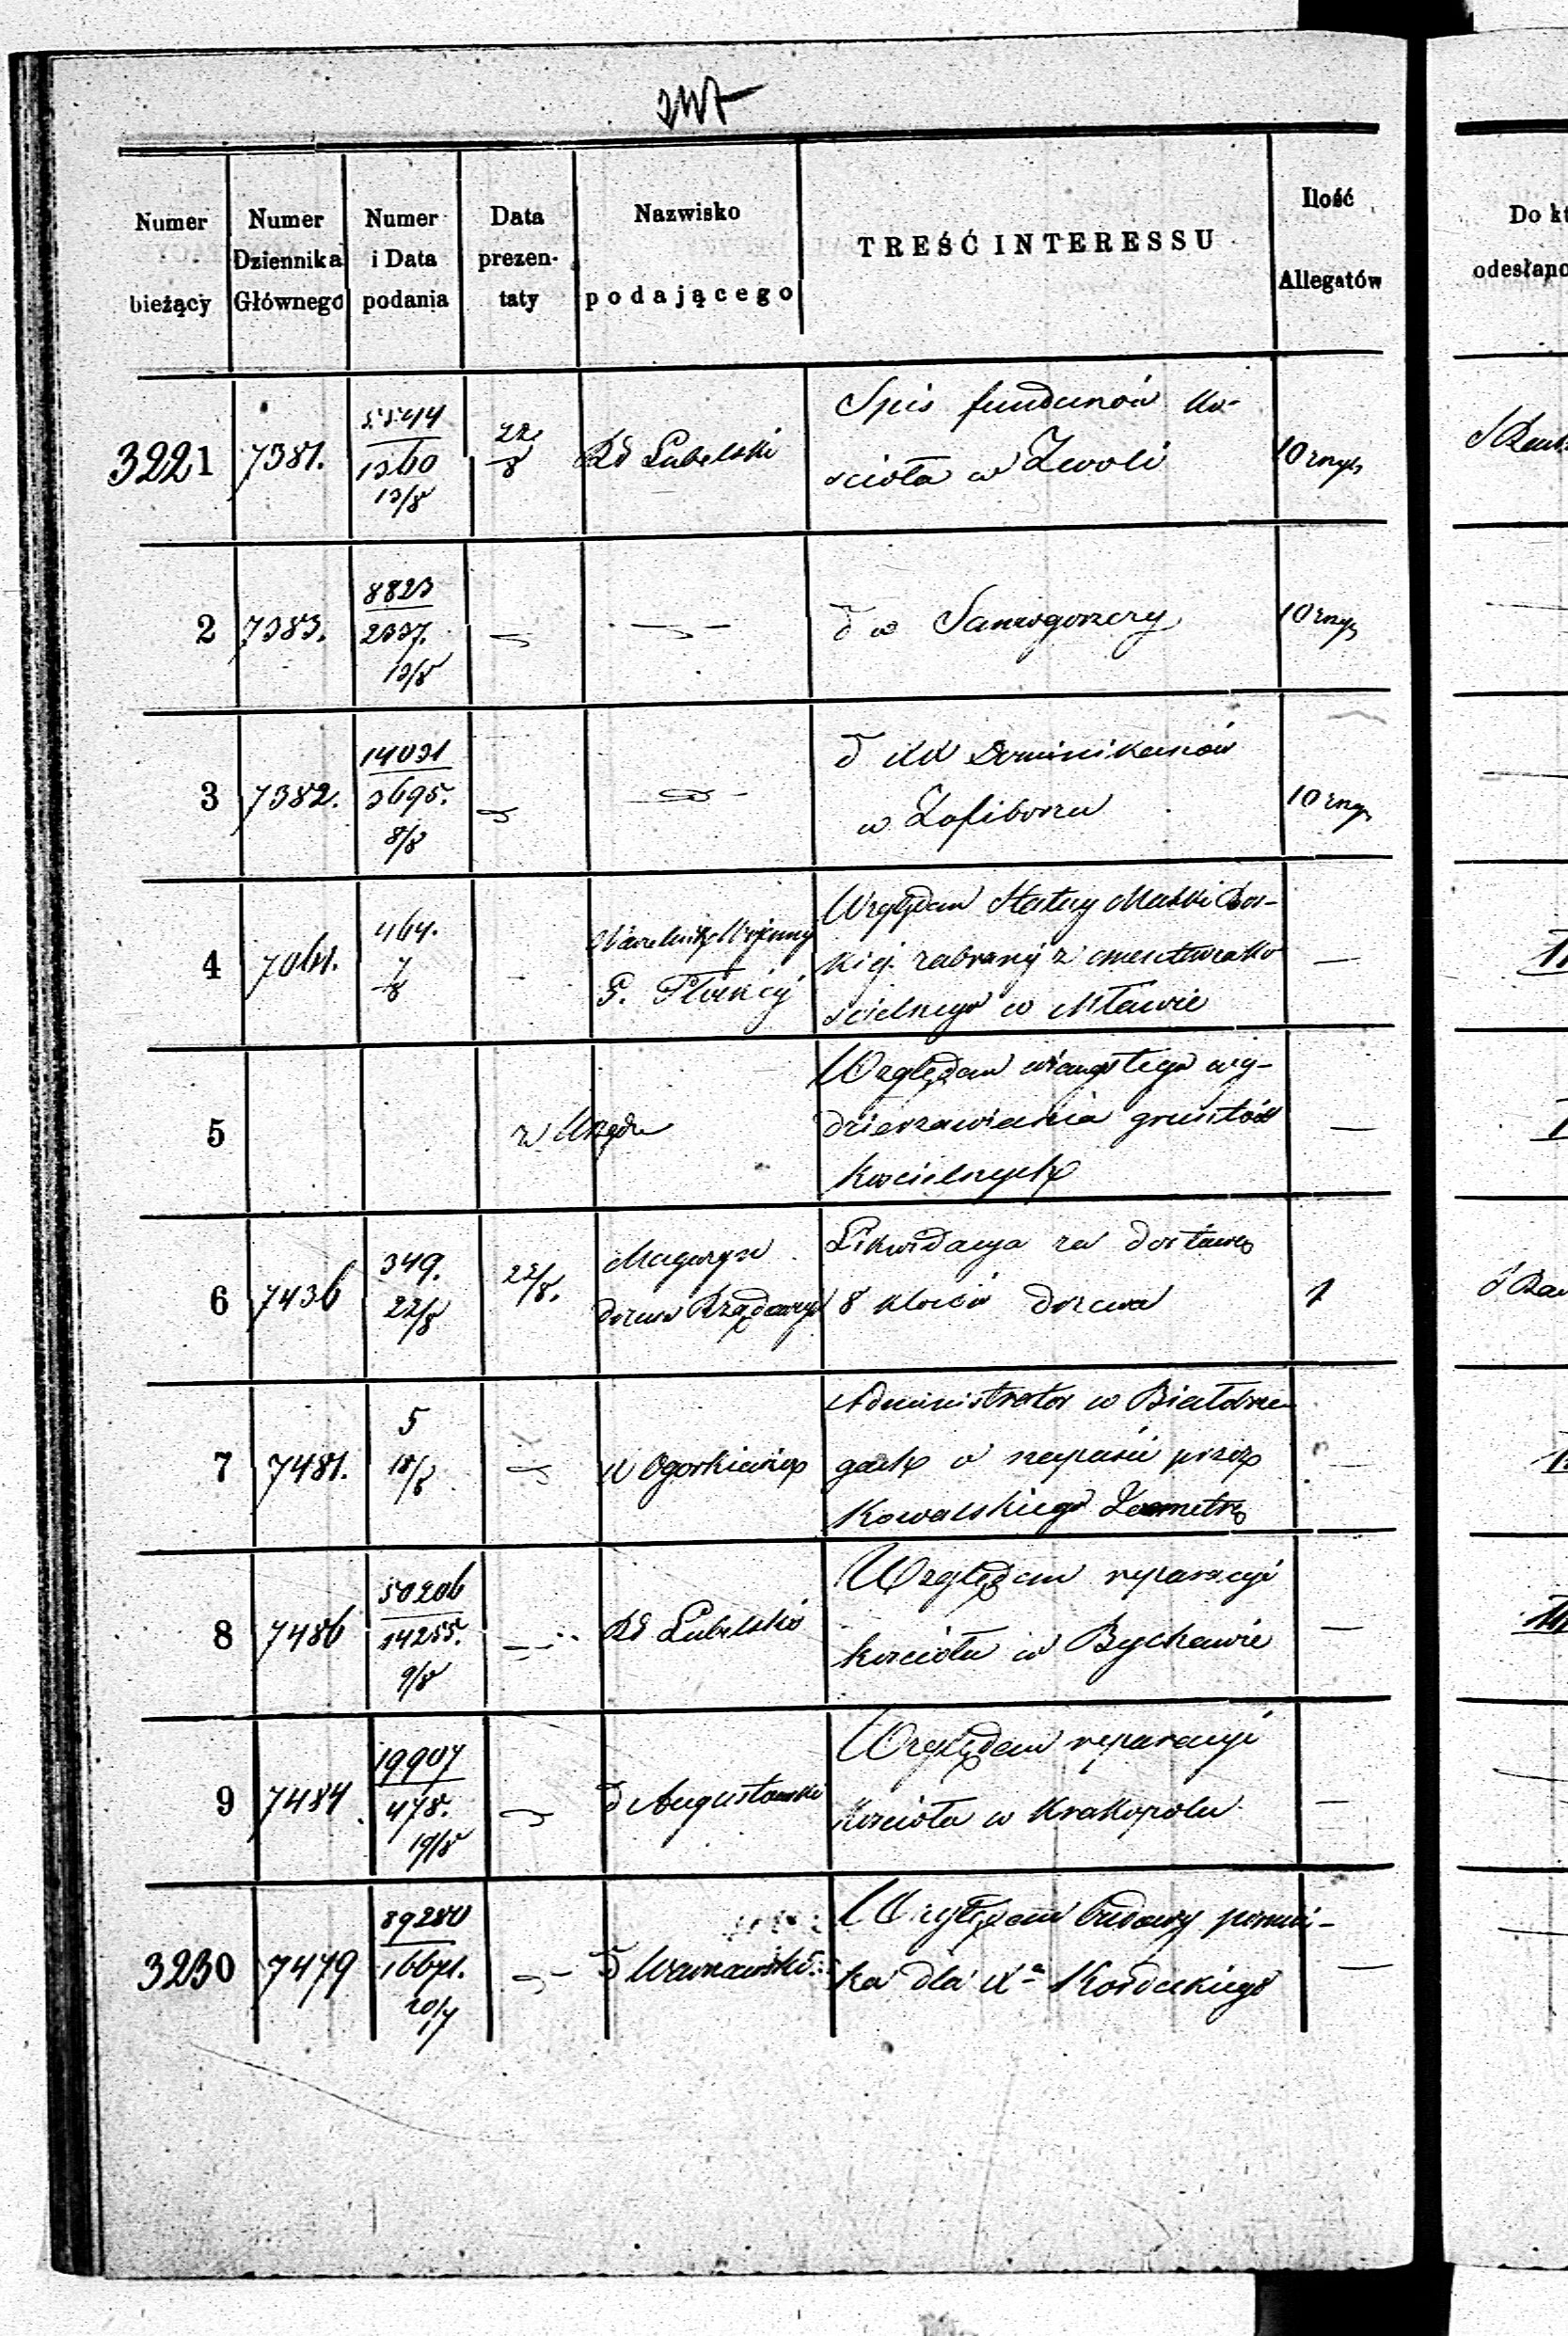 Numer bieżący
Numer Dziennika Głównego
Numer i Data podania
Data prezen- taty
Nazwisko podającego
TREŚĆ INTERESSU
Ilość Allegatów
Do kt
odesłano
3221 7381. 5544 1360 13/8 22/8 Rd Lubelski
Spis fundunów ko-
ścioła w Zwoli
10 rnych
2 7383. 8823 2337. 13/8
d w Sanwgorzery
10 rnych
3 7382. 14031 3695. 8/8
d XX Dominikanów
w Zofiborzu
10 rny
4 464. 7/8 Naczelnik Wojenny
G. Płockiéj
Względem Statuy Matki Bos-
kiéj zabranéj z cmentarza ko
ścielnego w Mławie
—
5 z Urzędu
Względem wieczystego wy-
dzierzawiania gruntów
kościelnych
—
6 7436 349. 22/8 22/8. Magazyn
drzewa Rządowego
Likwidacya za dostawę
8 kloców drzewa
1
7 7481. 5 18/8 X Ogorkiewicz
Administrator w Białobrze
gach o napaści przez
Kowalskiego
—
8 7486 50206 14255. 9/8 Rd Lubelski
Względem reparacyi
kościoła w Bychawie
—
9 7484 19907 478. 19/8 d Augustowski
Względem reparacyi
Kościoła w Krakopolu
—
3230 7479 89280 20/7 d Warszawski
Względem budowy pomni-
ka dla Xa Kordeckiego
—